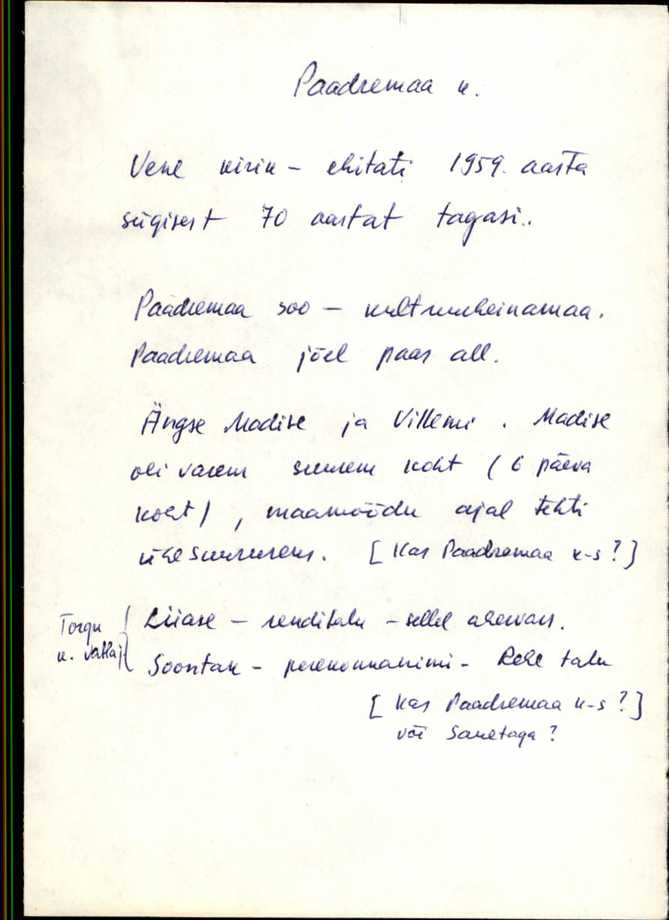 Paadremaa k.
Vene kirik – ehitati 1959. aasta
sügisest 70 aastat tagasi.
Paadremaa soo – kultuurheinamaa.
Paadremaa jõel paas all.
Ängse Madise ja Villemi. Madise
oli varem suurem koht (6 päeva
koht), maamõõdu ajal tehti
ühesuurusens. [Kas Paadremaa k-s?]
Liiase – renditalu – sellel
Torgu
k. vastas
Soontak – perekonnanimi – Rehe talu
[Kas Paadremaa k-s?]
või Saretaga?